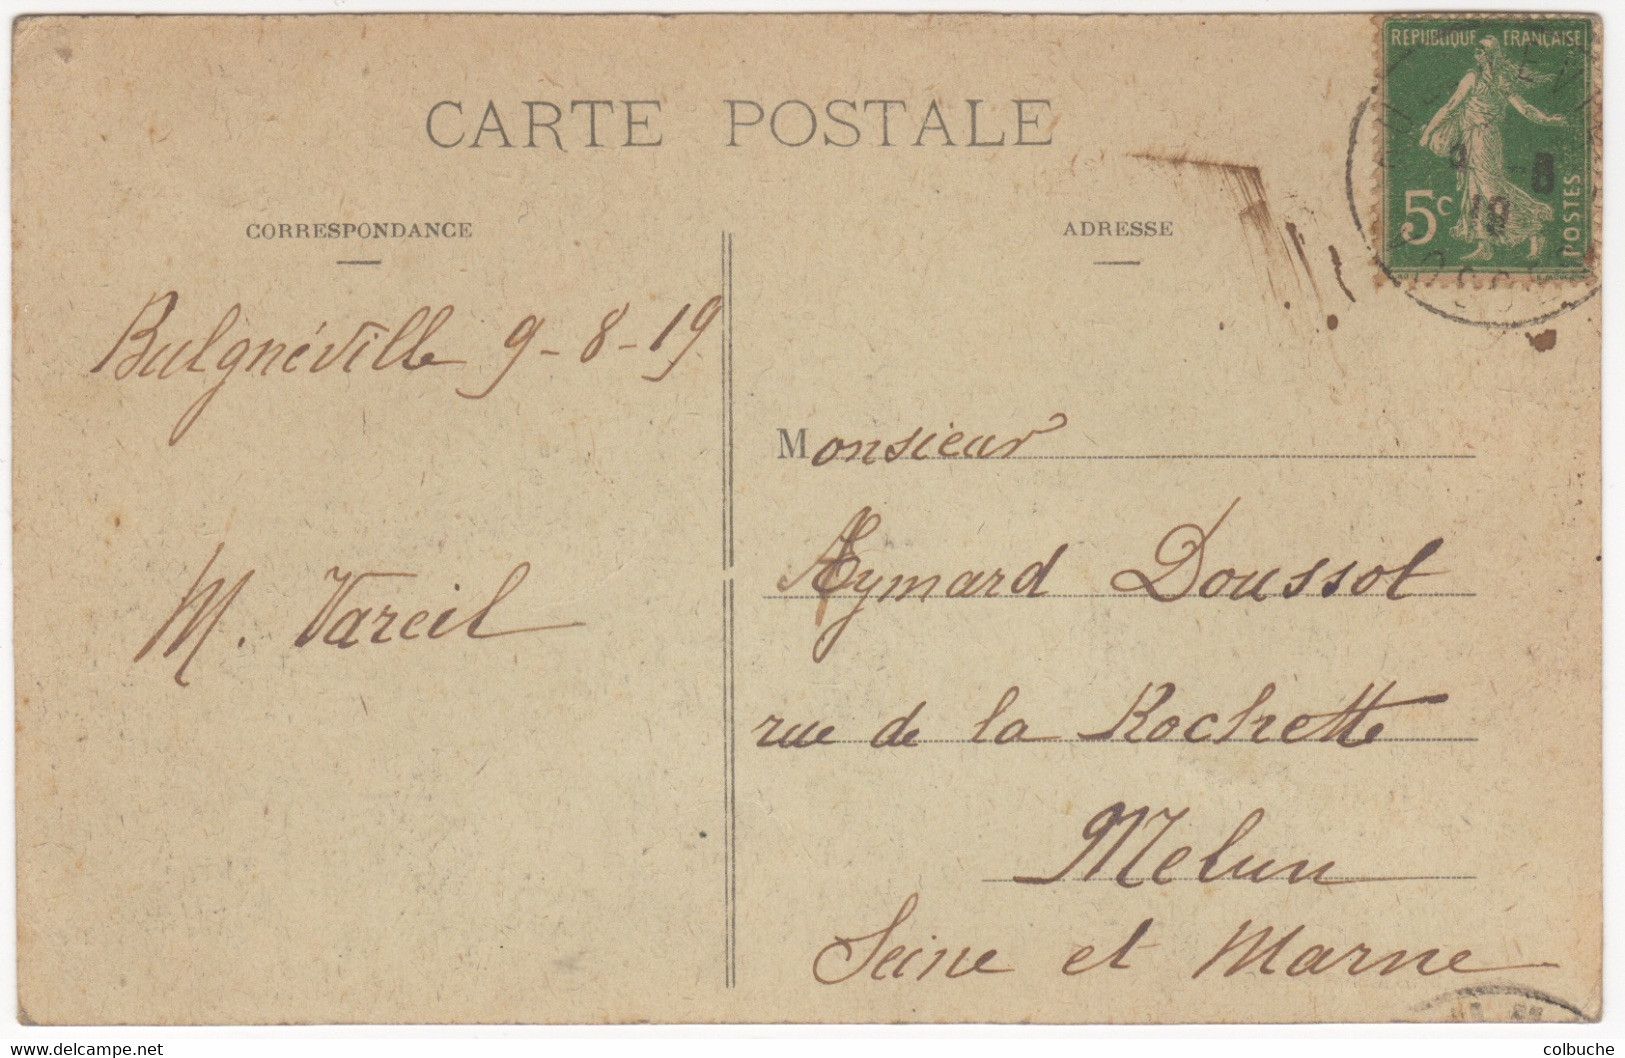 CARTE POSTALE
REPUBLIQUE FRANÇAISE
5c
POSTES
9 -8
19
CORRESPONDANCE
ADRESSE
Bulgnéville 9-8-19
M. Vareil
Monsieur
Aymard Doussot
rue de la Rochette
Melun
Seine et Marne
www.delcampe.net
colbuche